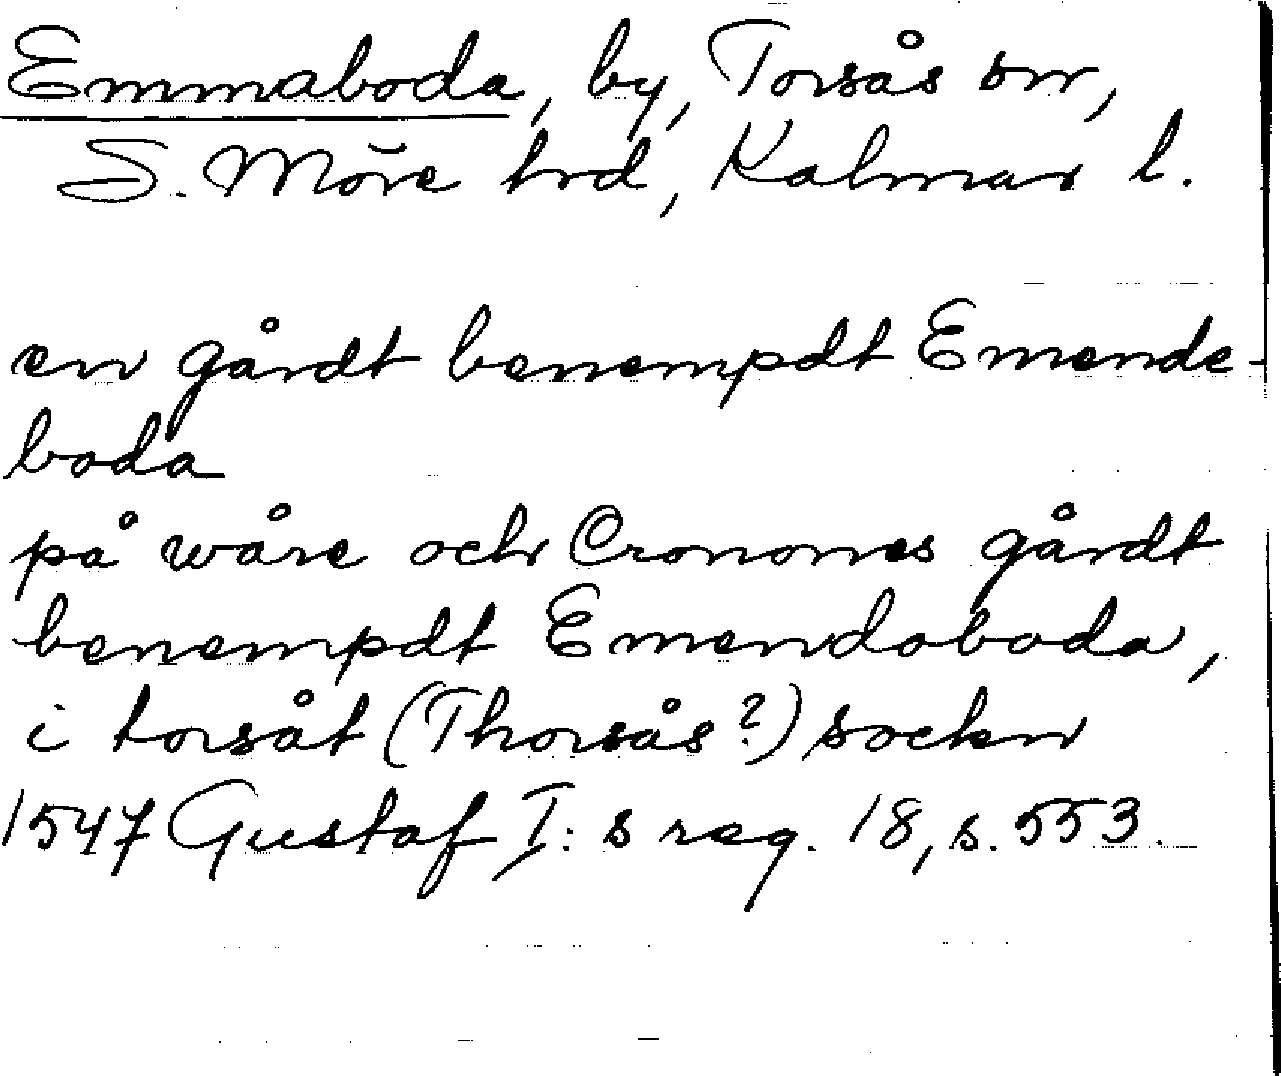 Emmaboda, by, Torsås sn,
S. Möre hrd, Kalmar l.
en gårdt benempdt Emende-
boda
på wåre och Cronones gårdt
benempdt Emendaboda,
i torsåt (Thorsås?) sockn
1547 Gustaf I:s reg. 18, s. 553.